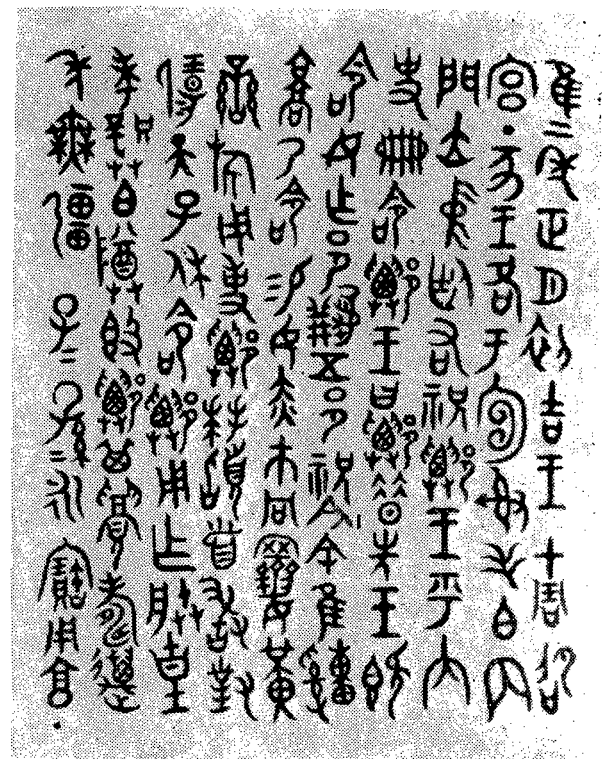 隹二年正月初吉王才周卲
宮丁亥王各于宣射毛白內
門立中廷右祝鄻王乎內
史冊命鄻王曰鄻昔先王既
命女乍邑五邑祝今余隹
乃命易女赤巿冋黃
䜌旂用事鄻拜𩒨首敢對
揚天子休命鄻用乍朕皇
考龏白尊𣪘鄻其眉壽萬
年無疆子=孫=永寶用享